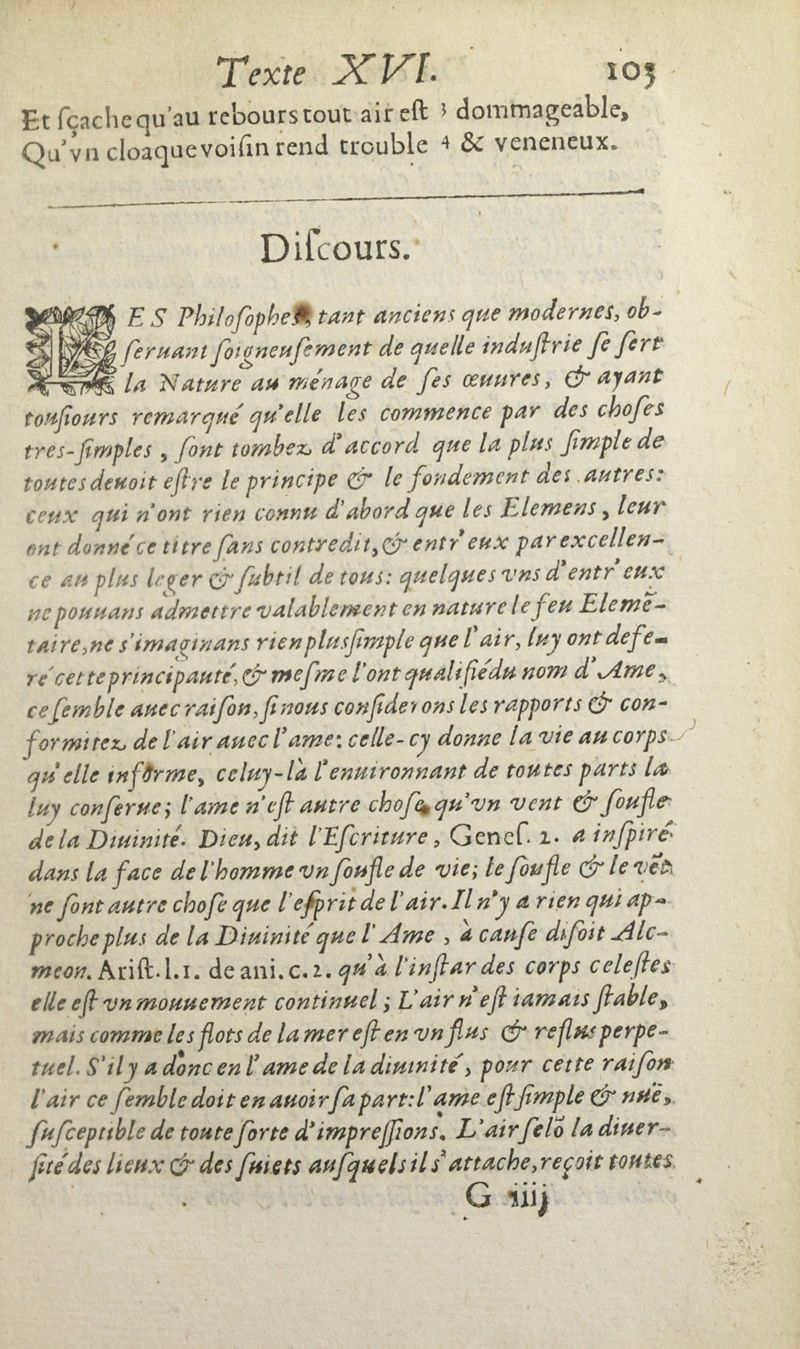 Texte XVI. 103
Et ſçache qu'au rebours tout air eſt 3 dommageable,
Qu'vn cloaque voiſin rend trouble 4 & veneneux.
Diſcours.
LES Philoſophes tant anciens que modernes, ob-
ſeruant ſoigneuſement de quelle induſtrie ſe ſert
la Nature au ménage de ſes œuures, & ayant
touſiours remarqué qu'elle les commence par des choſes
tres-ſimples, ſont tombez d'accord que la plus ſimple de
toutes deuoit eſtre le principe & le fondement des autres:
ceux qui n'ont rien connu d'abord que les Elemens, leur
ont donné ce titre ſans contredit, & entr'eux par excellen-
ce au plus leger & ſubtil de tous: quelques vns d'entr'eux
ne pouuans admettre valablement en nature le feu Elemē-
taire, ne s'imaginans rien plus ſimple que l'air, luy ont defe-
ré cette principauté, & meſme l'ont qualifié du nom d'Ame,
ce ſemble auec raiſon, ſi nous conſiderons les rapports & con-
formitez de l'air auec l'ame: celle-cy donne la vie au corps
qu'elle informe, celuy-là l'enuironnant de toutes parts la
luy conſerue; l'ame n'eſt autre choſe qu'vn vent & ſoufle
de la Diuinité. Dieu, dit l'Eſcriture, Geneſ. 2. a inſpiré
dans la face de l'homme vn ſoufle de vie; le ſoufle & le vēt
ne ſont autre choſe que l'eſprit de l'air. Il n'y a rien qui ap-
proche plus de la Diuinité que l'Ame, à cauſe diſoit Alc-
meon. Ariſt. l.1. de ani. c.2. qu'à l'inſtar des corps celeſtes
elle eſt vn mouuement continuel; L'air n'eſt iamais ſtable,
mais comme les flots de la mer eſt en vn flus & reflus perpe-
tuel. S'il y a donc en l'ame de la diuinité, pour cette raiſon
l'air ce ſemble doit en auoir ſa part: l'ame eſt ſimple & nuë,
ſuſceptible de toute ſorte d'impreſſions. L'air ſelō la diuer-
ſité des lieux & des ſuiets auſquels il s'attache, reçoit toutes
G iiij